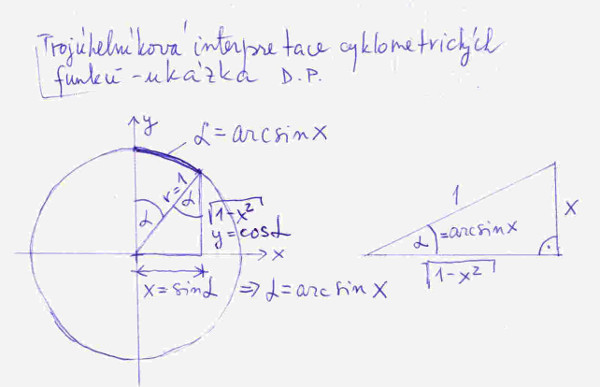 Trojúhelníková interpretace cyklometrických
funkcí - ukázka D.P.
y
α = arcsin x
r=1
α
α
√1-x²
y = cosα
x
x = sinα ⇒ α = arcsin x
1
x
α = arcsin x
√1-x²